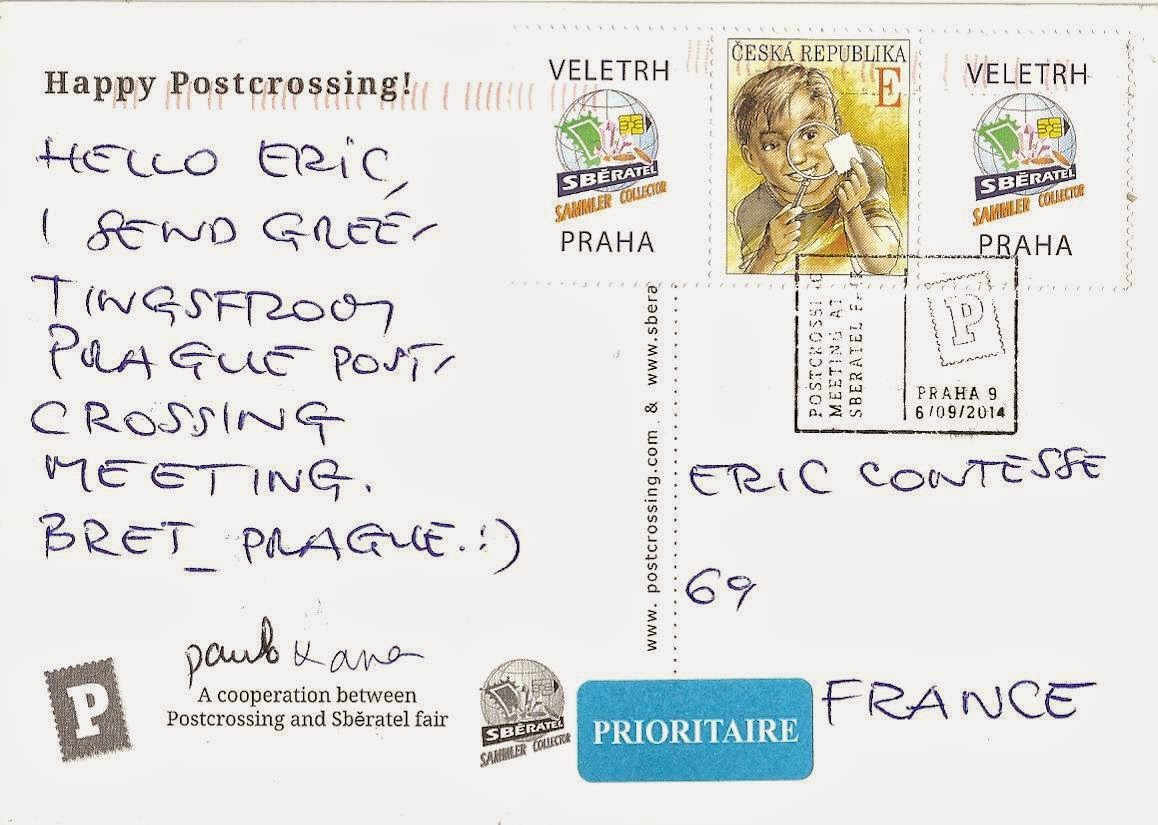 Happy Postcrossing!
HELLO ERIC,
I SEND GREE-
TINGS FROM
PRAGUE POST-
CROSSING
MEETING.
BRET_PRAGUE.:)
paulo
A cooperation between
Postcrossing and Sběratel fair
P
SBĚRATEL
SAMMLER COLLECTOR
www.postcrossing.com & www.sbera
VELETRH
SBĚRATEL
SAMMLER COLLECTOR
PRAHA
ČESKÁ REPUBLIKA
E
VELETRH
SBĚRATEL
SAMMLER COLLECTOR
PRAHA
POSTCROSSI
MEETING AT
SBERATEL
P
PRAHA 9
6/09/2014
ERIC CONTESSE
69
FRANCE
PRIORITAIRE